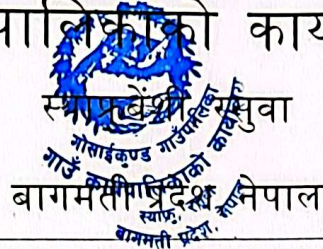 पालिकाको कार्य
स्याफ्रुबेंशी रसुवा
बागमती प्रदेश, नेपाल
गोसाईकुण्ड गाउँपालिका
गाउँ कार्यपालिकाको कार्यालय
स्याफ्रु, रसुवा
बागमती प्रदेश, नेपाल